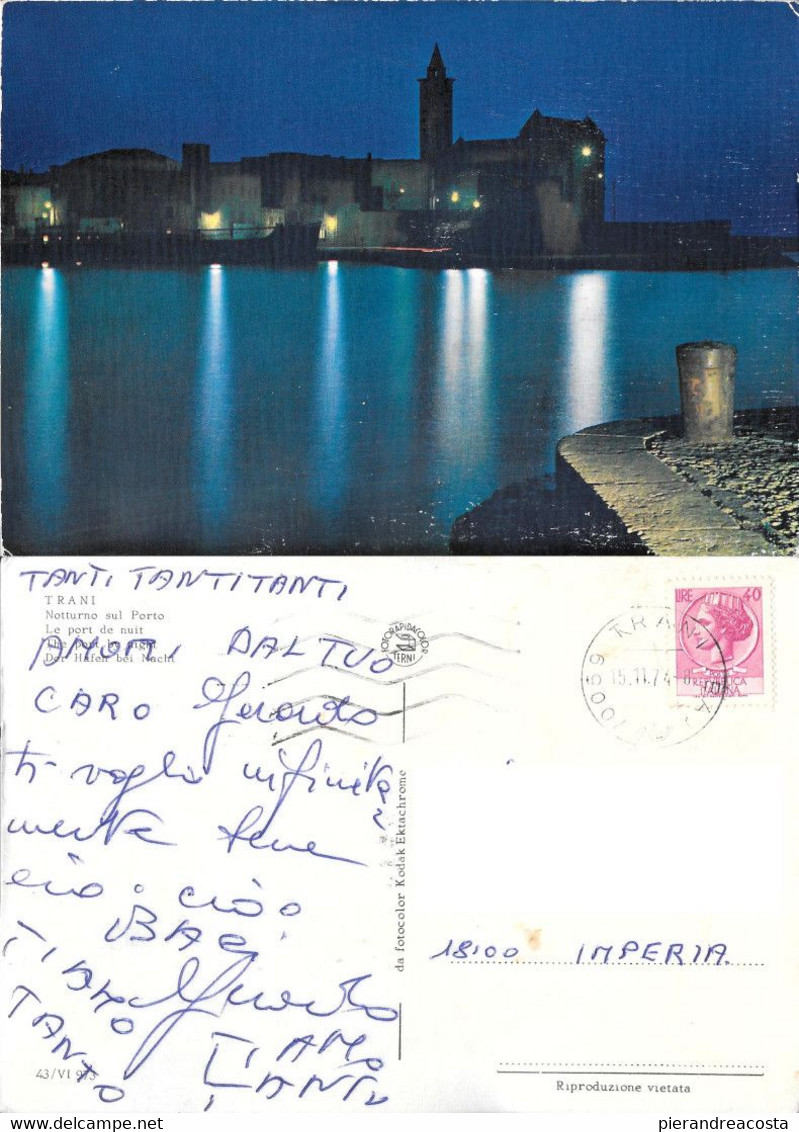 TANTI TANTI TANTI
TRANI
Notturno sul Porto
Le port de nuit
The port by night
Der Hafen bei Nacht
AMORI DAL TUO
CARO
ti voglio infinita
mente bene
ciao. ciao
BACI
TI AMO
TANTO
TI AMO
TANTO
43/VI 973
FOTORAPIDACOLOR
TERNI
da fotocolor Kodak Ektachrome
LIRE 40
REPUBBLICA
ITALIANA
70059 TRANI
15.11.74
18100 IMPERIA
Riproduzione vietata
pierandreacosta